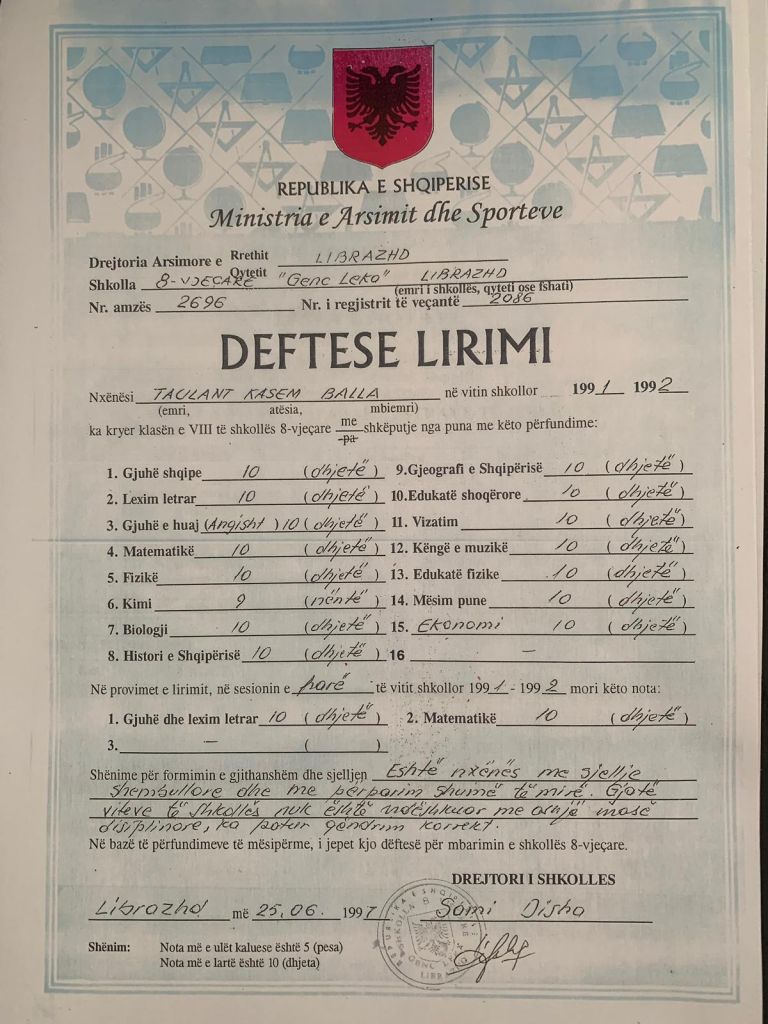 REPUBLIKA E SHQIPERISE
Ministria e Arsimit dhe Sporteve
Drejtoria Arsimore e Rrethit Qytetit LIBRAZHD
Shkolla 8-VJEÇARE "Genc Leka" LIBRAZHD
(emri i shkollës, qyteti ose fshati)
Nr. amzës 2696 Nr. i regjistrit të veçantë 2086
DEFTESE LIRIMI
Nxënësi TAULANT KASEM BALLA në vitin shkollor 1991 1992
(emri, atësia, mbiemri)
ka kryer klasën e VIII të shkollës 8-vjeçare me pa shkëputje nga puna me këto përfundime:
1. Gjuhë shqipe 10 (dhjetë) 9.Gjeografi e Shqipërisë 10 (dhjetë)
2. Lexim letrar 10 (dhjetë) 10.Edukatë shoqërore 10 (dhjetë)
3. Gjuhë e huaj (Anglisht) 10 (dhjetë) 11. Vizatim 10 (dhjetë)
4. Matematikë 10 (dhjetë) 12. Këngë e muzikë 10 (dhjetë)
5. Fizikë 10 (dhjetë) 13. Edukatë fizike 10 (dhjetë)
6. Kimi 9 (nëntë) 14. Mësim pune 10 (dhjetë)
7. Biologji 10 (dhjetë) 15. EKONOMI 10 (dhjetë)
8. Histori e Shqipërisë 10 (dhjetë) 16 —
Në provimet e lirimit, në sesionin e parë të vitit shkollor 1991 - 1992 mori këto nota:
1. Gjuhë dhe lexim letrar 10 (dhjetë) 2. Matematikë 10 (dhjetë)
3. — ( )
Shënime për formimin e gjithanshëm dhe sjelljen Është nxënës me sjellje
shembullore dhe me përparim shumë të mirë. Gjatë
viteve të shkollës nuk është ndëshkuar me asnjë masë
disiplinore, ka patur qëndrim korrekt.
Në bazë të përfundimeve të mësipërme, i jepet kjo dëftesë për mbarimin e shkollës 8-vjeçare.
DREJTORI I SHKOLLES
Librazhd më 25.06. 1997 Sami Disha
Shënim: Nota më e ulët kaluese është 5 (pesa)
Nota më e lartë është 10 (dhjeta)